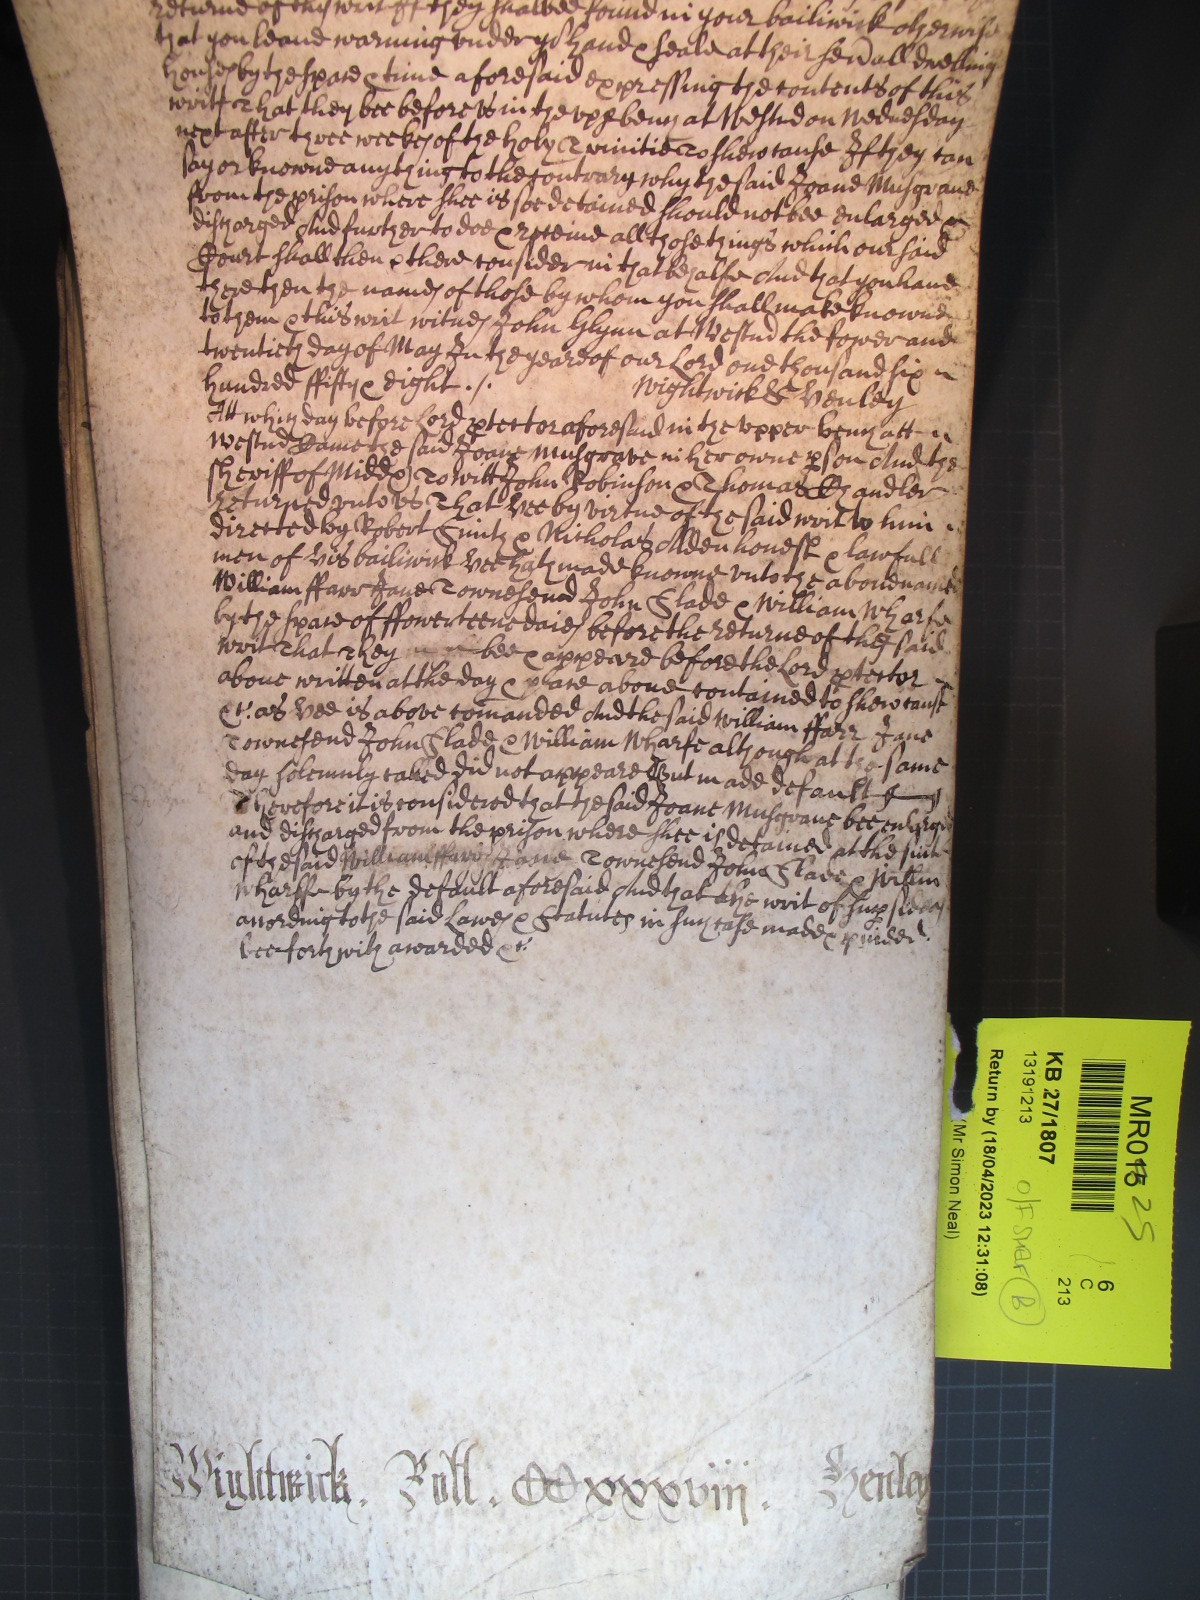 returne of this writ If they shalbee found in your bailiwick otherwise
that you leaue warning vnder yor hand & seale at their seuall dwelling
houses by the space & time aforesaid expressing the contents of this
writt That they bee before vs in the vpp bench at Westmr on Wednesday
next after three weekes of the holy Trinitie To shew cause If they can
say or knowne any thing to the contrary why the said Joane Musgraue
from the prison where shee is soe detained should not bee enlarged &
discharged And further to doe & receiue all those things which our said
Court shall then & there consider in that behalfe And that you haue
there then the names of those by whom you shall make knowne
to them & this writ witnes John Glynn at Westmr the fower and
twentieth day of May In the yeare of our Lord one thousand six
hundred ffifty & eight ./. Wightwick & Henley
Att which day before Lord ptector aforesaid in the vpper bench att
Westmr Came the said Joane Musgrave in her owne pson And the
sheriff of Midd To witt John Robinson & Thomas Chandler
returned vnto vs That hee by virtue of the said writ to him
directed by Robert Smith & Nicholas Alden honest & lawfull
men of his bailiwick hee hath made knowne vnto the aboue named
William ffarr Jane Townesend John Slade & William Wharfe
by the space of ffowerteene daies before the returne of the said
writ That they bee & appeare before the Lord ptector
aboue written at the day & place aboue contained to shew cause
&c as hee is above comanded And the said William ffarr Jane
Townesend John Slade & William Wharfe although at the same
day solemnly called did not appeare But made default
Therefore it is considered that the said Joane Musgraue bee enlarged
and discharged from the prison where shee is detained at the suite
of the said William ffarr Jane Townesend John Slade & Willm
Wharffe by the default aforesaid And that the writ of supsideas
according to the said Lawes & Statutes in such case made & puided
bee forthwith awarded &c
Wightwick. Roll. CCxxxviij. Henley
MR01 25
6
C
213
KB 27/1807
13191213
O/F SHELF B
Return by (18/04/2023 12:31:08)
(Mr Simon Neal)